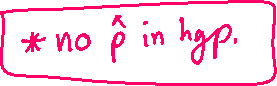 * no p̂ in hgp.